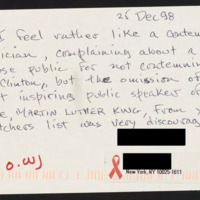 26 Dec 98
I feel rather like a
ician, complaining about a
se public for not condemning
Clinton, but the omission of
t inspiring public speaker of
e, MARTIN LUTHER KING, from
tchers list was very discourag
O.WJ
New York, NY 10025-1611